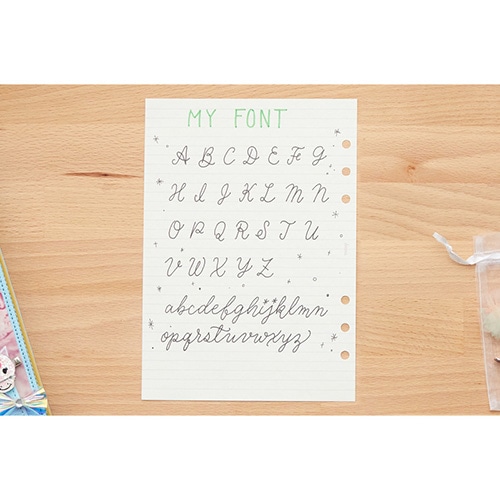 MY FONT
A B C D E F G
H I J K L M N
O P Q R S T U
V W X Y Z
abcdefghijklmn
opqrstuvwxyz